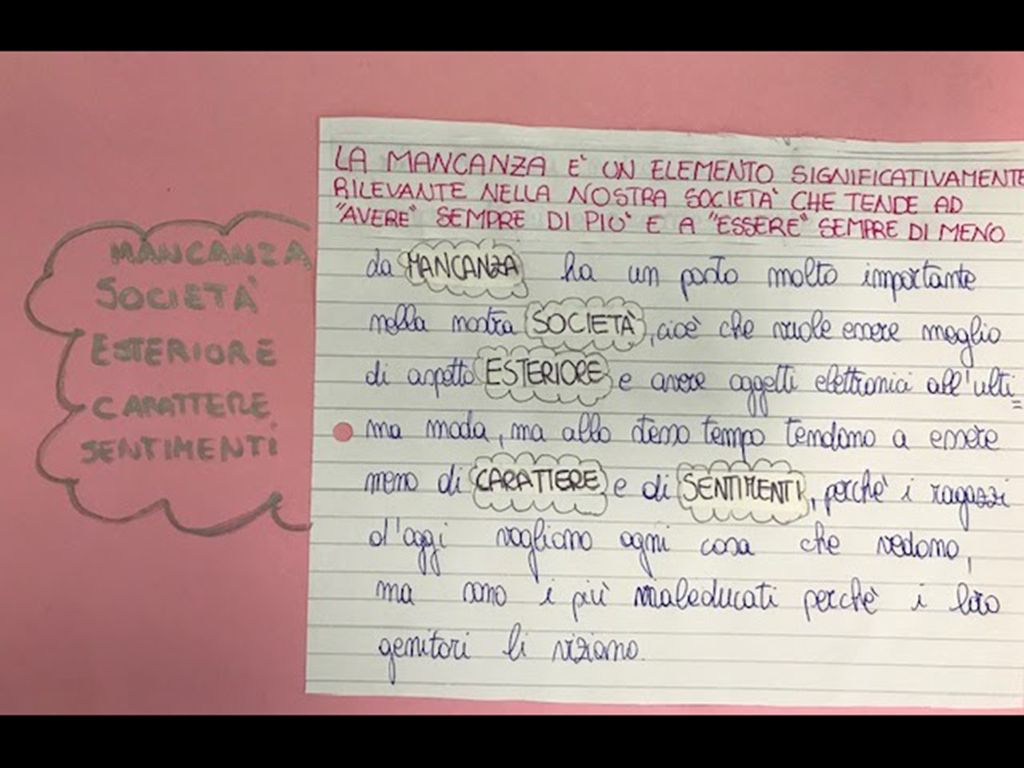 MANCANZA
SOCIETÀ
ESTERIORE
CARATTERE
SENTIMENTI
LA MANCANZA E' UN ELEMENTO SIGNIFICATIVAMENTE
RILEVANTE NELLA NOSTRA SOCIETA' CHE TENDE AD
"AVERE" SEMPRE DI PIU' E A "ESSERE" SEMPRE DI MENO
La MANCANZA ha un posto molto importante
nella nostra SOCIETÀ, cioè che vuole essere meglio
di aspetto ESTERIORE e avere oggetti elettronici all'ulti=
ma moda, ma allo stesso tempo tendono a essere
meno di CARATTERE e di SENTIMENTI, perchè i ragazzi
d'oggi vogliono ogni cosa che vedono,
ma sono i più maleducati perchè i loro
genitori li viziano.